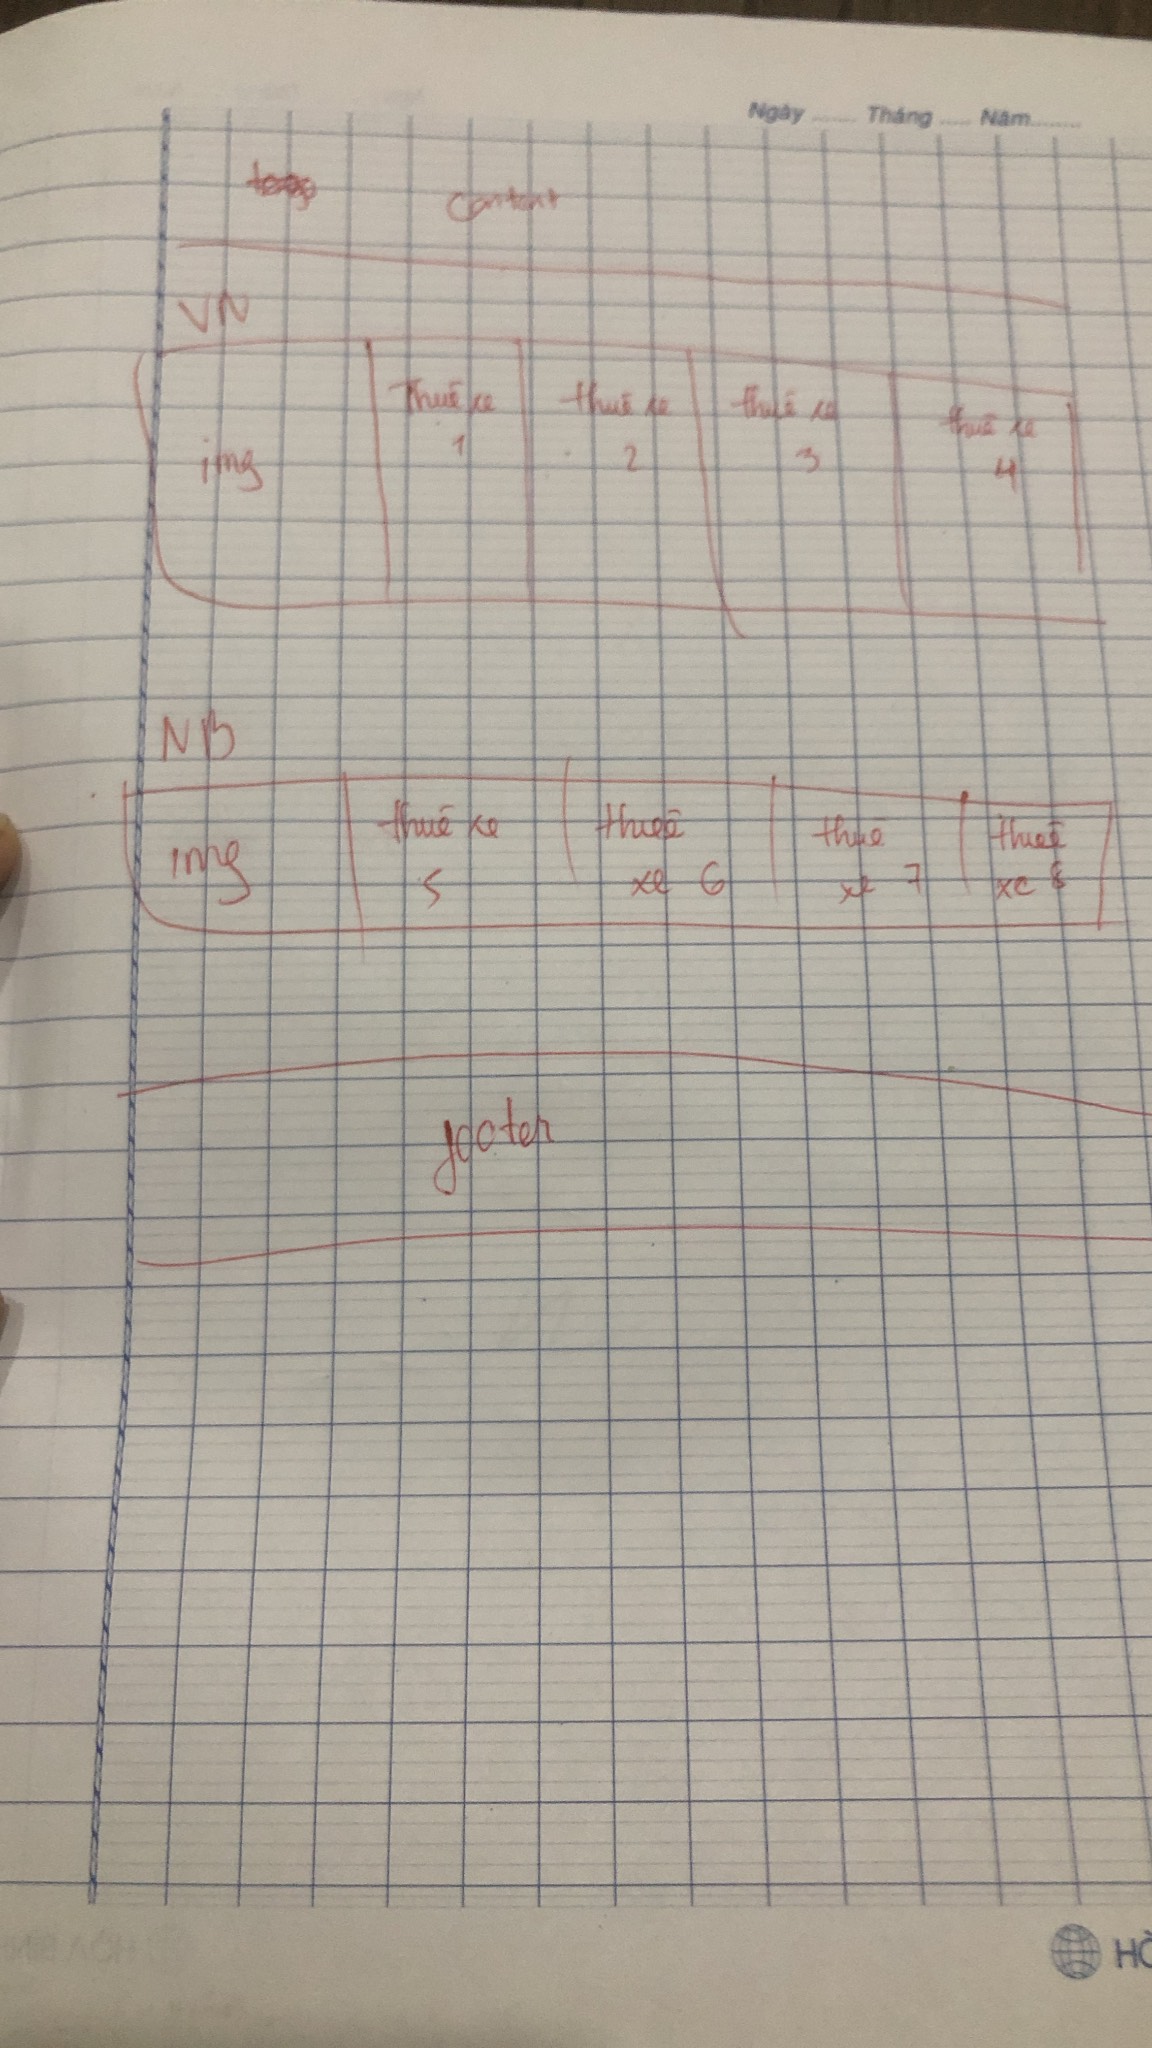 Ngày ........ Tháng ..... Năm.........
content
VN
img
Thuê xe 1
thuê xe 2
thuê xe 3
thuê xe 4
NB
img
thuê xe 5
thuê xe 6
thuê xe 7
thuê xe 8
footer
HÒ